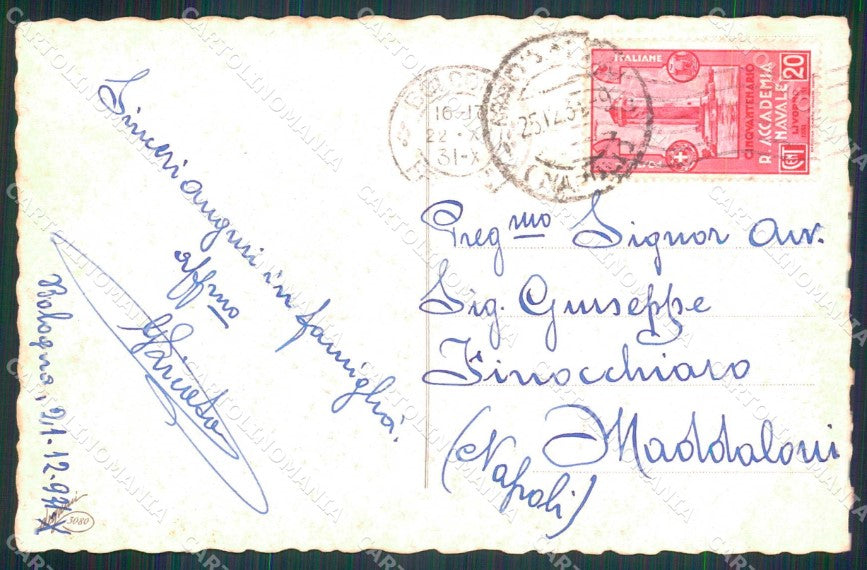 Sinceri auguri in famiglia.
affmo
Bologna, 21-12-931-X
3080
BOLOGNA
16-17
22 - X
31-X
25.12.31
(NAPOLI)
ITALIANE
CINQUANTENARIO
R. ACCADEMIA
NAVALE
LIVORNO
20
CENT
Preg.mo Signor Avv.
Sig. Giuseppe
Finocchiaro
Maddaloni
(Napoli)
CARTOLINOMANIA